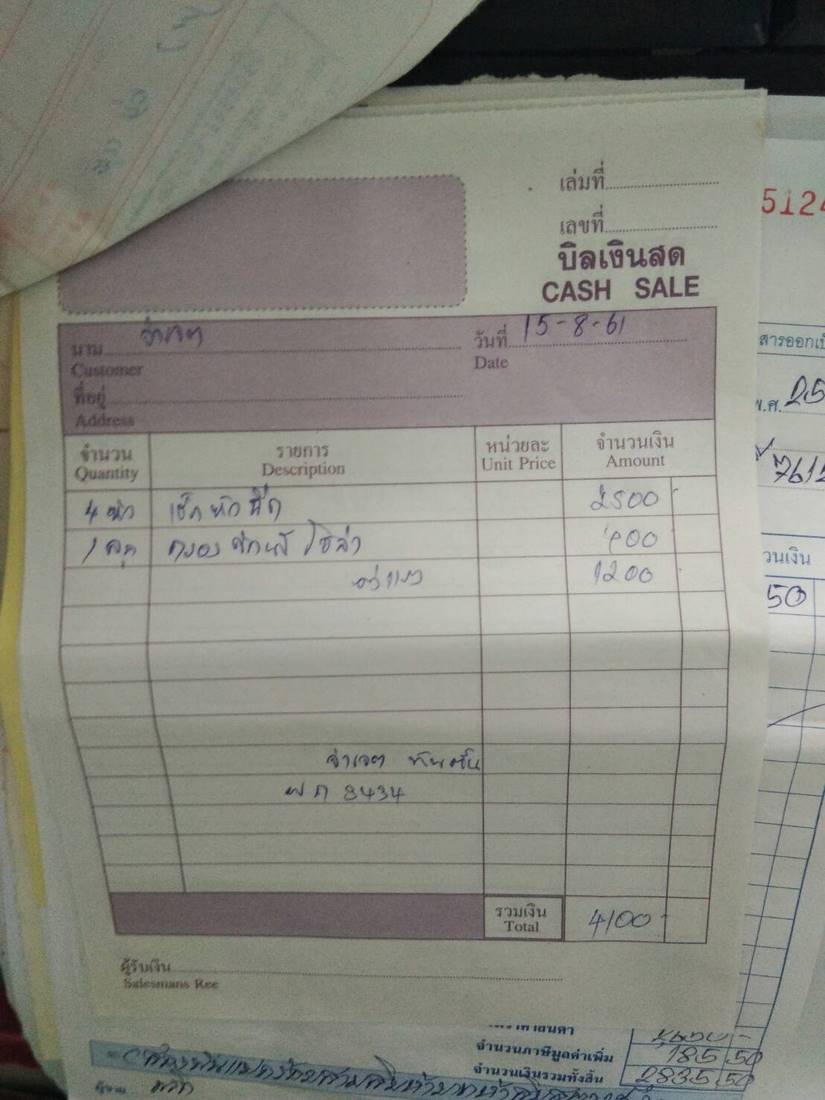 เล่มที่
เลขที่
บิลเงินสด
CASH SALE
512
นาม จ่าเจต วันที่ 15-8-61
Customer Date
ที่อยู่
Address
จำนวน รายการ หน่วยละ จำนวนเงิน
Quantity Description Unit Price Amount
4 หัว เช็คหัวฉีด 2500
1 ลูก กรองดักน้ำ โซล่า
ค่าแรง 1200
จ่าเจต
8434
รวมเงิน 4100
Total
ผู้รับเงิน
Salesmans Ree
พ.ศ. 25
วนเงิน
50
จำนวนภาษีมูลค่าเพิ่ม 185.50
จำนวนเงินรวมทั้งสิ้น 2835.50